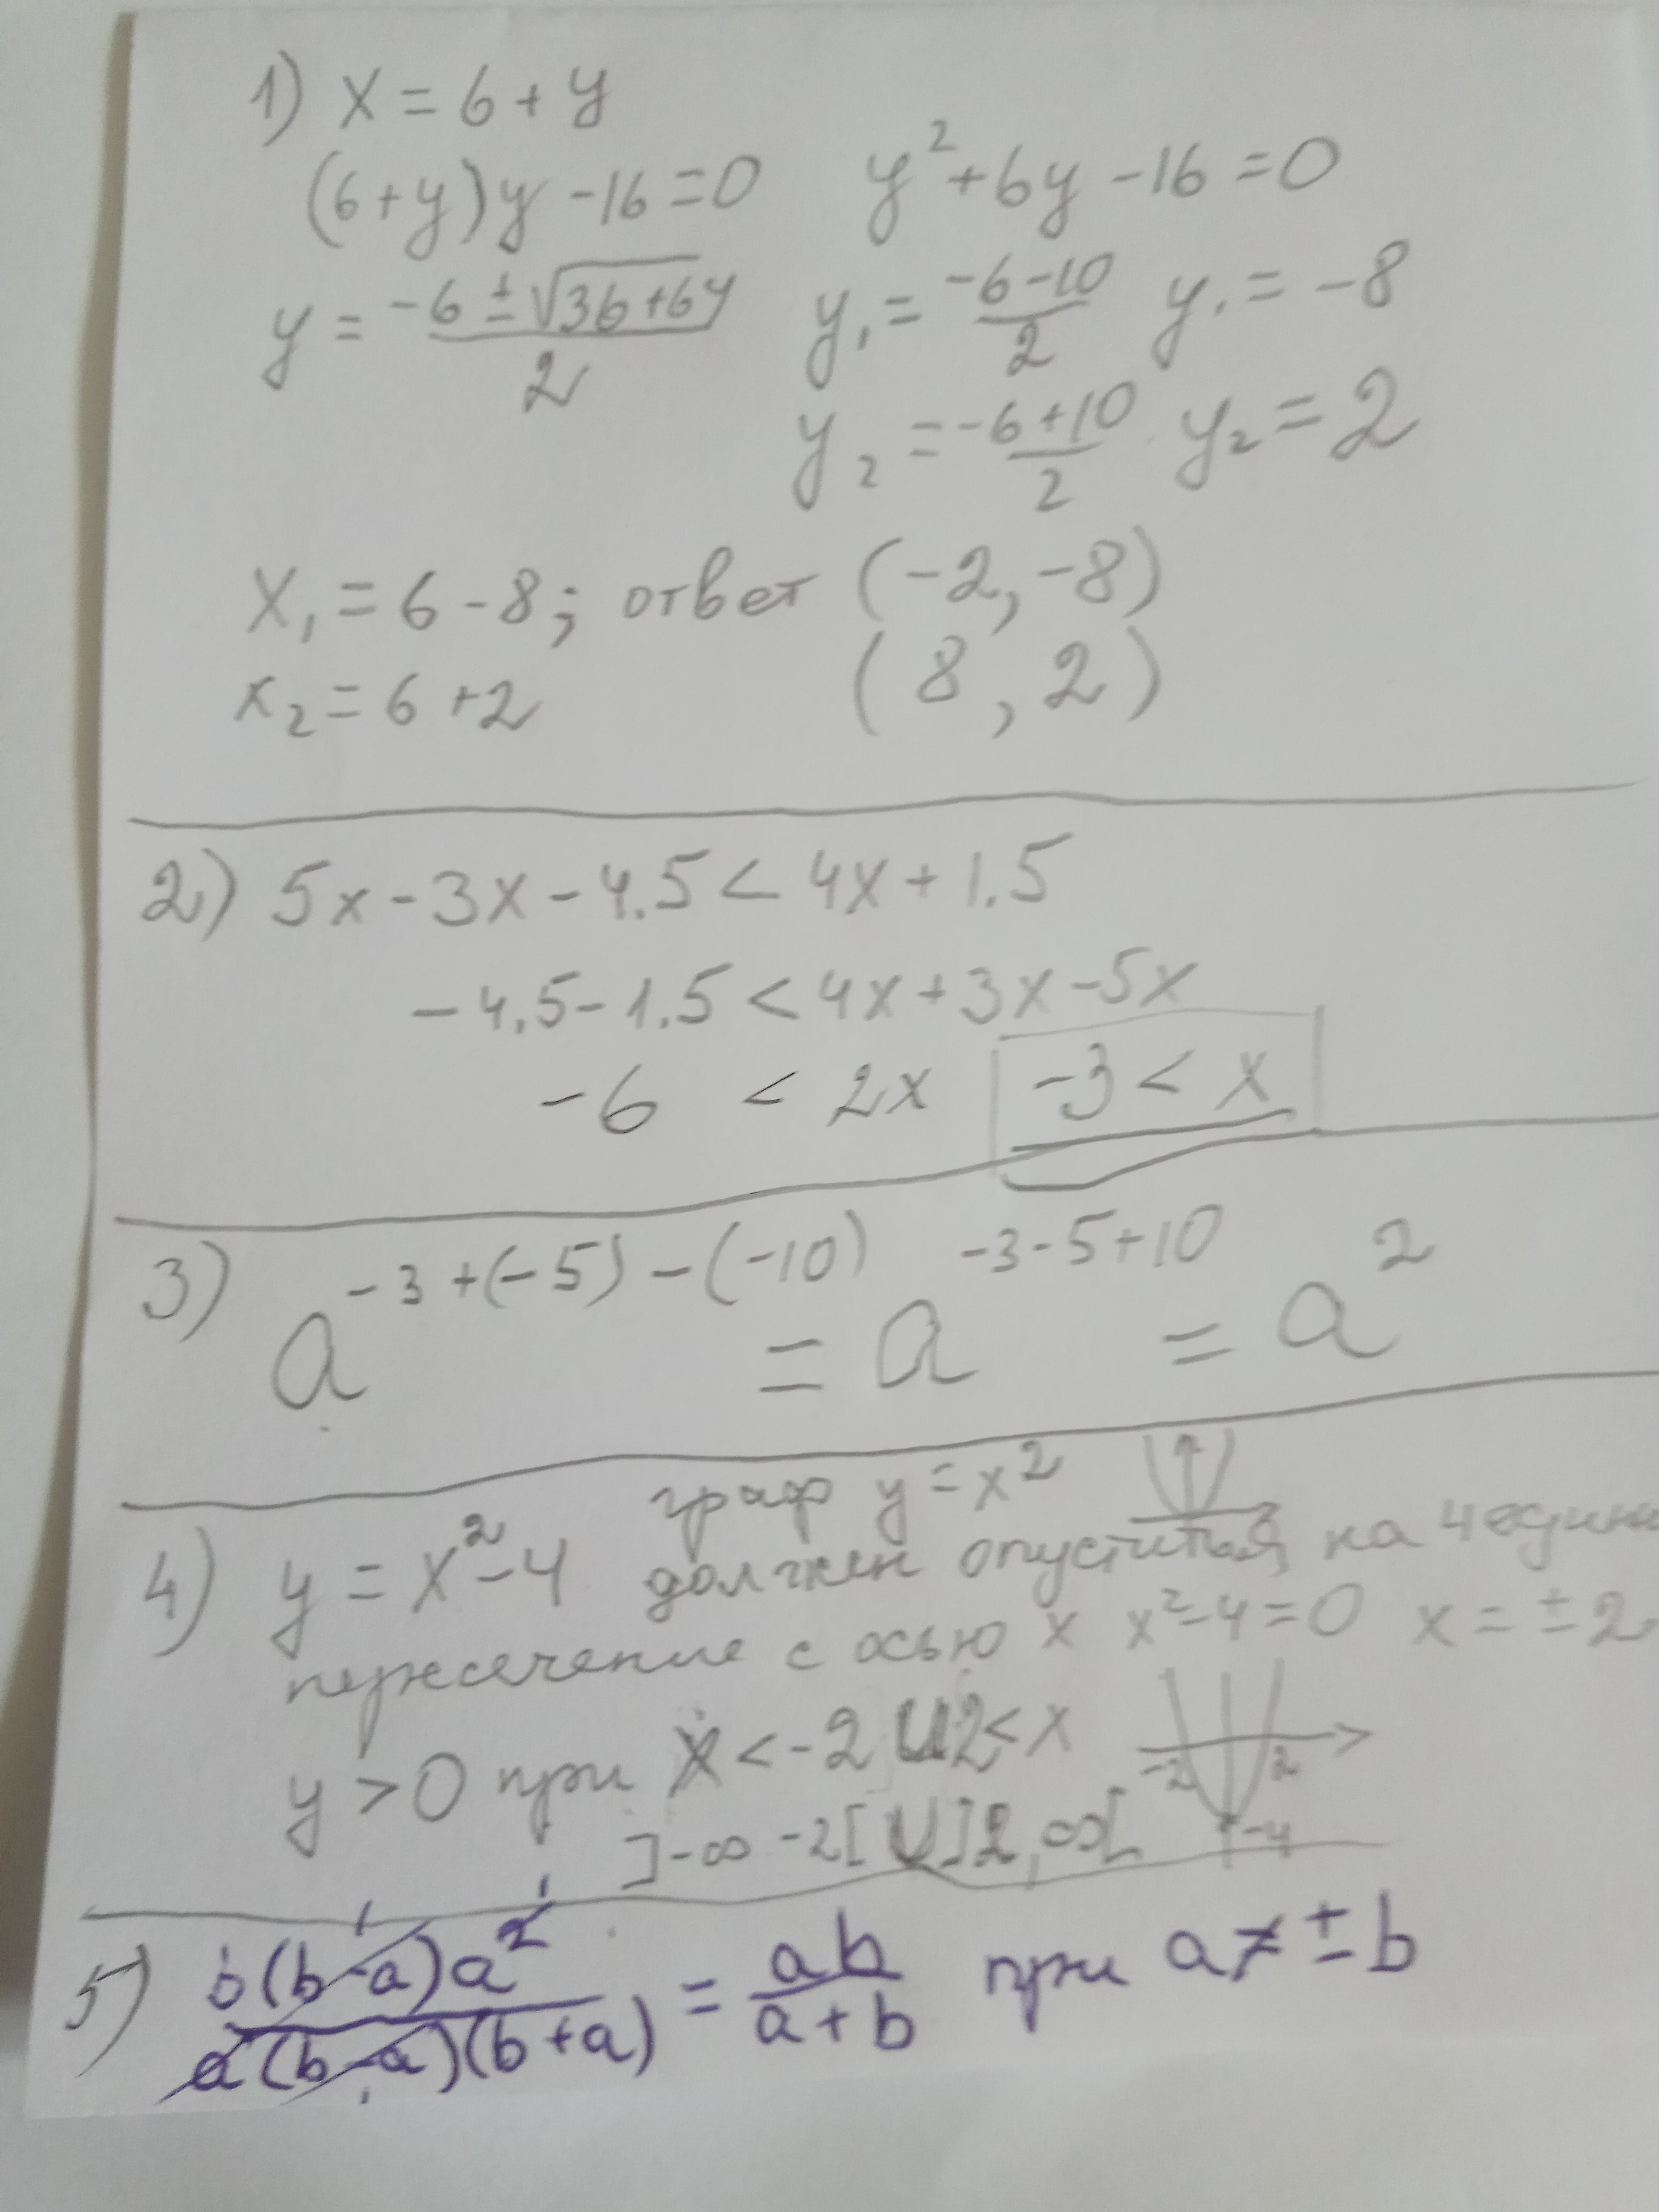 1) x = 6 + y
(6+y)y - 16 = 0 y² + 6y - 16 = 0
y = (-6 ± √(36+64))/2 y₁ = (-6-10)/2 y₁ = -8
y₂ = (-6+10)/2 y₂ = 2
x₁ = 6 - 8; ответ (-2, -8)
x₂ = 6 + 2 (8, 2)
2) 5x - 3x - 4.5 < 4x + 1.5
-4.5 - 1.5 < 4x + 3x - 5x
-6 < 2x -3 < x
3) a^(-3+(-5)-(-10)) = a^(-3-5+10) = a²
граф y = x²
4) y = x² - 4 должен опуститься на 4 един
пересечение с осью x x² - 4 = 0 x = ±2
y > 0 при x < -2 U 2 < x
-2 2
]-∞ -2[ U ]2, ∞[ -4
1 1
5) b(b-a)a²/(a(b-a)(b+a)) = ab/(a+b) при a ≠ ± b
1